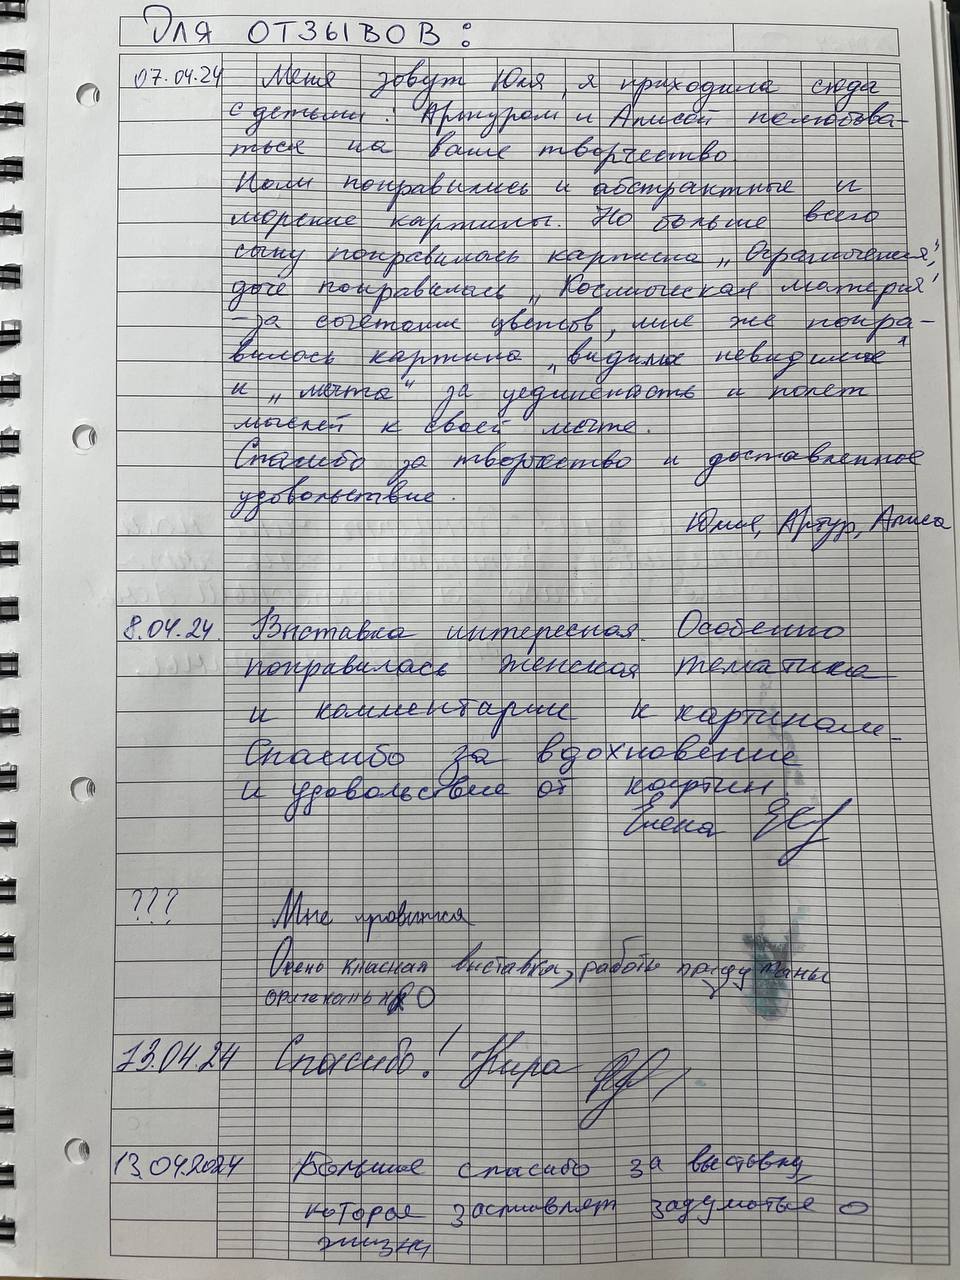 Для отзывов:
07.04.24 Меня зовут Юля, я приходила сюда
с детьми: Артуром и Алисой полюбова-
ться на ваше творчество.
Нам понравились и абстрактные и
морские картины. Но больше всего
сыну понравилась картина „Ограничения",
доче понравилась „Космическая материя"
-за сочетание цветов, мне же понра-
вилась картина „видимое невидимое"
и „мечта" за уединеность и полет
мыслей к своей мечте.
Спасибо за творчество и доставленное
удовольствие.
Юлия, Артур, Алиса
8.04.24. Выставка интересная. Особенно
понравилась женская тематика
и комментарии к картинам.
Спасибо за вдохновение
и удовольствие от картин.
Елена
??? Мне нравится
Очень красная выставка, работы продуманы
13.04.24 Спасибо! Кира
13.04.2024 Большое спасибо за выставку,
которая заставляет задуматься о
жизни